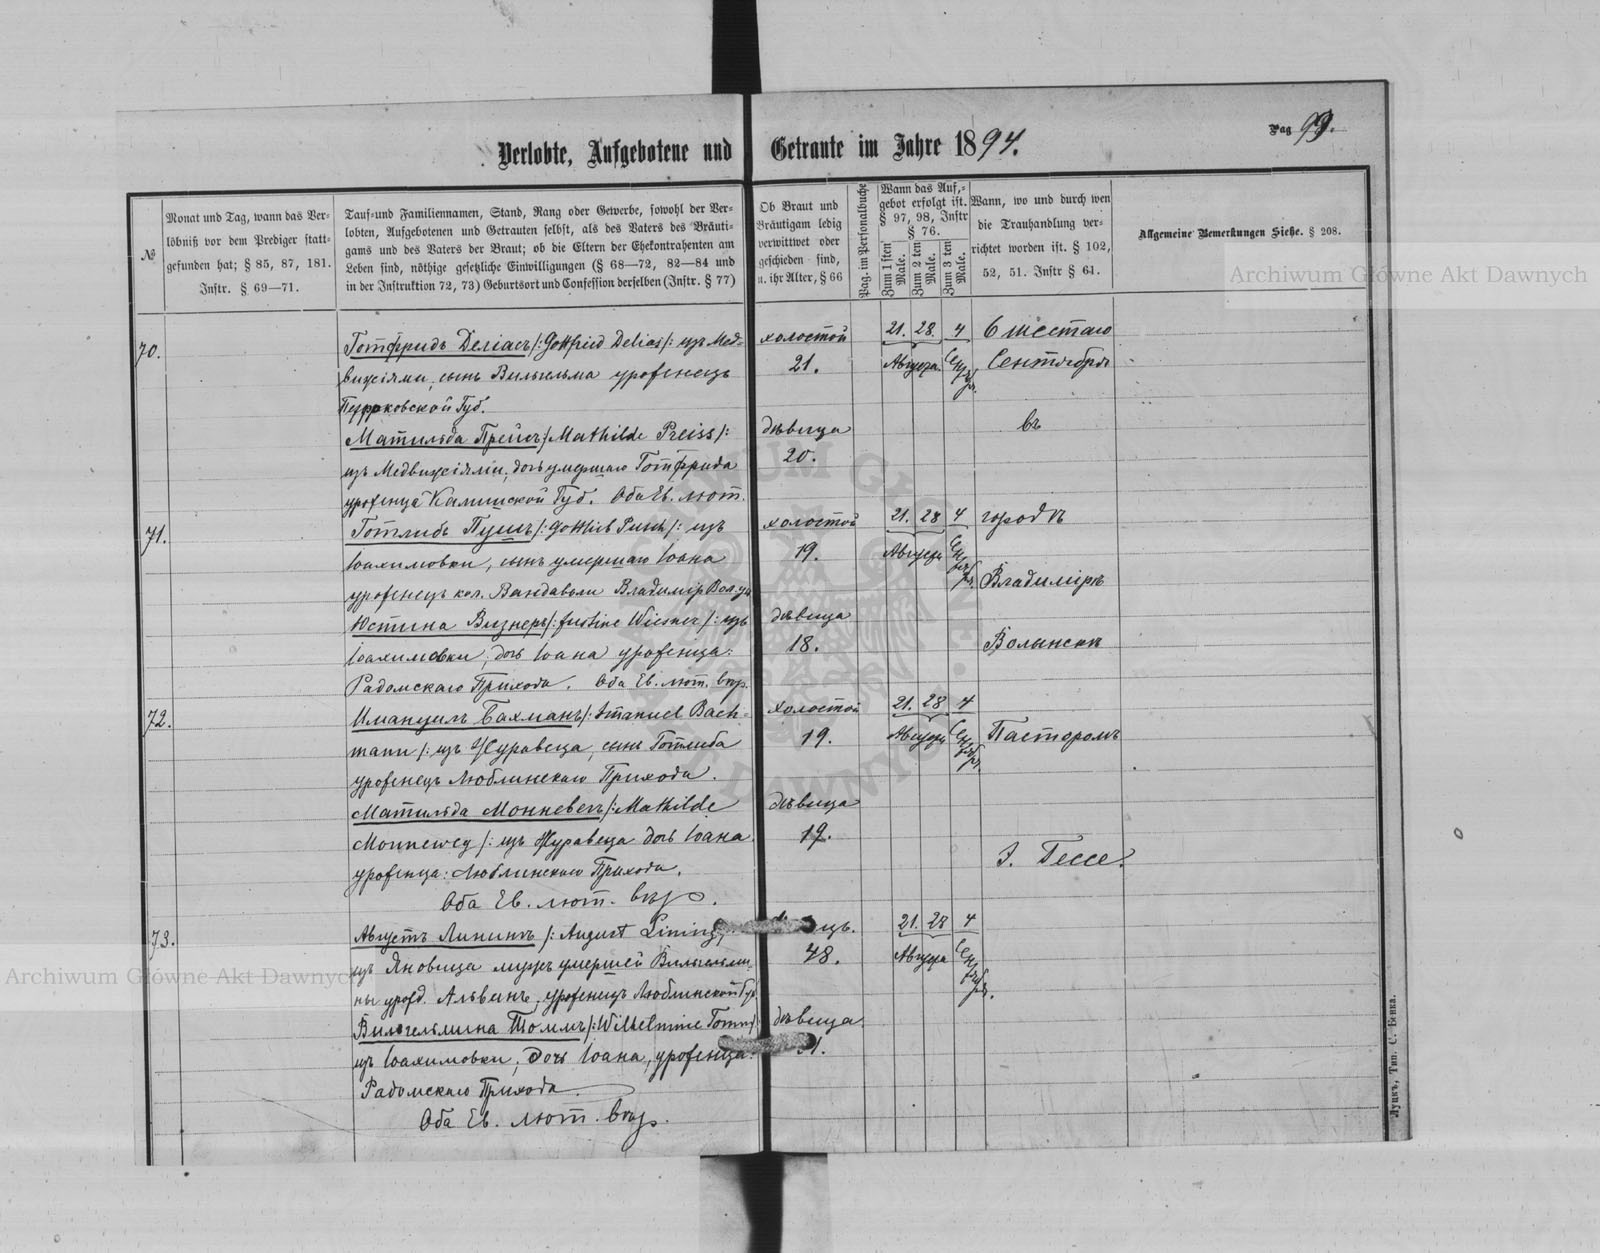 Pag 99.
Verlobte, Aufgebotene und Getraute im Jahre 1894.
№
Monat und Tag, wann das Ver-
löbniß vor dem Prediger statt-
gefunden hat; § 85, 87, 181.
Instr. § 69—71.
Tauf- und Familiennamen, Stand, Rang oder Gewerbe, sowohl der Ver-
lobten, Aufgebotenen und Getrauten selbst, als des Vaters des Bräuti-
gams und des Vaters der Braut; ob die Eltern der Ehekontrahenten am
Leben sind, nöthige gesetzliche Einwilligungen (§ 68—72, 82—84 und
in der Instruktion 72, 73) Geburtsort und Confession derselben (Instr. § 77)
Ob Braut und
Bräutigam ledig
verwittwet oder
geschieden sind,
u. ihr Alter, § 66
Pag. im Personalbuche
Wann das Auf-
gebot erfolgt ist.
§ 97, 98, Instr
§ 76.
Zum 1 sten Male.
Zum 2 ten Male.
Zum 3 ten Male.
Wann, wo und durch wen
die Trauhandlung ver-
richtet worden ist. § 102,
52, 51. Instr § 61.
Allgemeine Bemerkungen Siehe. § 208.
Archiwum Główne Akt Dawnych
70.
Готфридъ Делiасъ /: Gottfried Delias /: изъ Мед-
сынъ Вильгельма уроженецъ
Губ.
Матильда Прейсъ /: Mathilde Preiss /:
изъ дочь умершаго Готфрида
уроженца Калишской Губ. Оба Ев. лют.
холостой
21.
дѣвица
20.
21. 28. 4
Августа Сентября
6 шестаго
Сентября
въ
71.
Готлибъ Пушъ /: Gottlieb Pusch /: изъ
Іоахимовки, сынъ умершаго Іоана
уроженецъ кол. Владимір Вол. у.
Юстина Визнеръ /: Justine Wiesner /: изъ
Іоахимовки, дочь Іоана уроженца:
Радомскаго Прихода. Оба Ев. лют. вѣр.
холостой
19.
дѣвица
18.
21. 28 4
Августа Сентября
городѣ
Владимірѣ
Волынскѣ
72.
Имануилъ Бахманъ /: Imanuel Bach-
mann /: изъ Журавеца, сынъ Готлиба
уроженецъ Люблинскаго Прихода.
Матильда Монневегъ /: Mathilde
Monneweg /: изъ Журавеца дочь Іоана
уроженца: Люблинскаго Прихода.
Оба Ев. лют. вѣр.
холостой
19.
дѣвица
19.
21. 28 4
Августа Сентября
Пасторомъ
Э. Гессе.
73.
Августъ Лининъ /: August Lining /
изъ Яновица мужъ умершей Вильгельми-
ны урожд. Альвинъ, уроженецъ Люблинской Губ
Вильгельмина Томмъ /: Wilhelmine Tomm /:
изъ Іоахимовки, дочь Іоана, уроженца:
Радомскаго Прихода.
Оба Ев. лют. вѣр.
48.
дѣвица
21. 28 4
Августа Сентября.
Archiwum Główne Akt Dawnych
Луцкъ, Тип. С. Бенка.